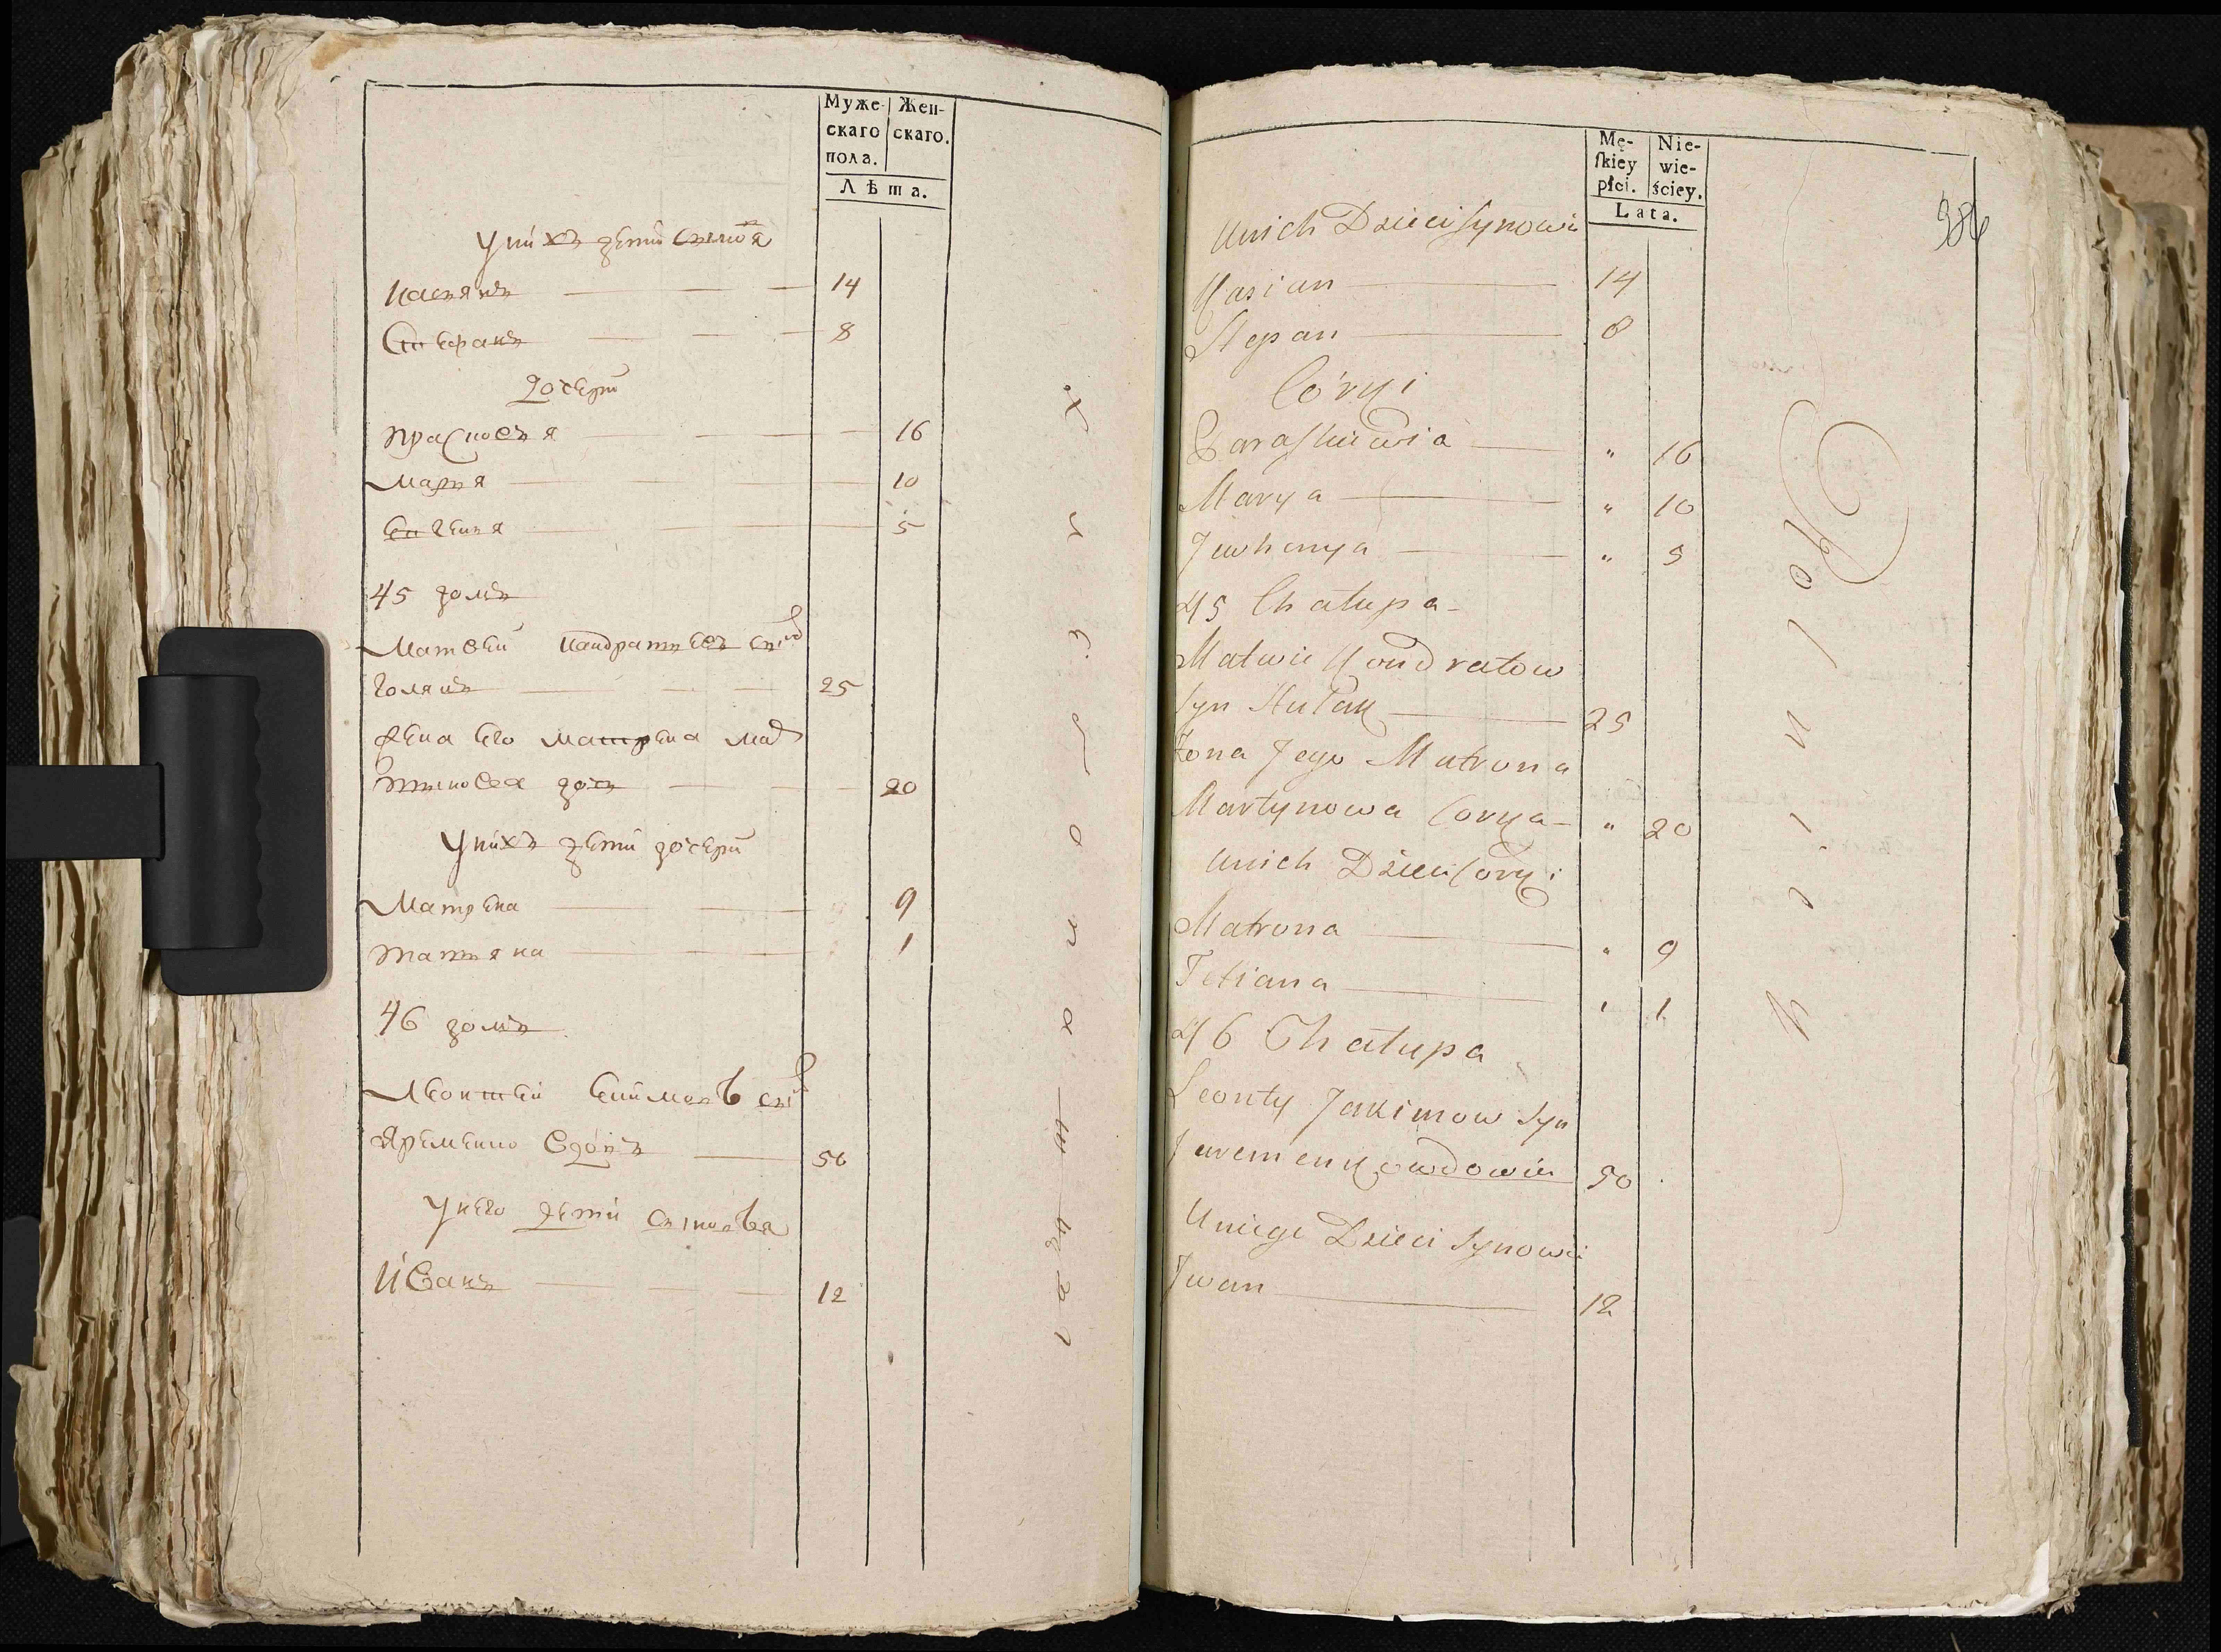 Муже- Жен-
скаго скаго.
пола.
Лѣта.
У нихъ дети сыновя
Касянъ 14
Стефанъ 8
Дочери
Прасковья 16
Марья 10
Евгения 5
45 домъ
Матвей Кандратьевъ сынъ
25
Жена его Матрена Мар
тынова дочь 20
У нихъ дети дочери
Матрена 9
Татьяна 1
46 домъ
Леонтей Екимовъ сынъ
Яременко вдовъ 50
У него дети сыновья
Иванъ 12
Mę- Nie-
ſkiey wie-
płci. ściey.
Lata.
386
U nich Dzieci Synowi
Kasian 14
Stepan 8
Córki
Paraskiewia " 16
Marya " 10
Jewhenya " 5
45 Chałupa
Matwii Kondratow
Syn 25
Żona Jego Matrona
Martynowa Corka " 20
U nich Dzieci Corki
Matrona " 9
Tetiana " 1
46 Chałupa
Leonty Jakimow Syn
Jaremenko wdowiec 50
U niego Dzieci Synowie
Iwan 12